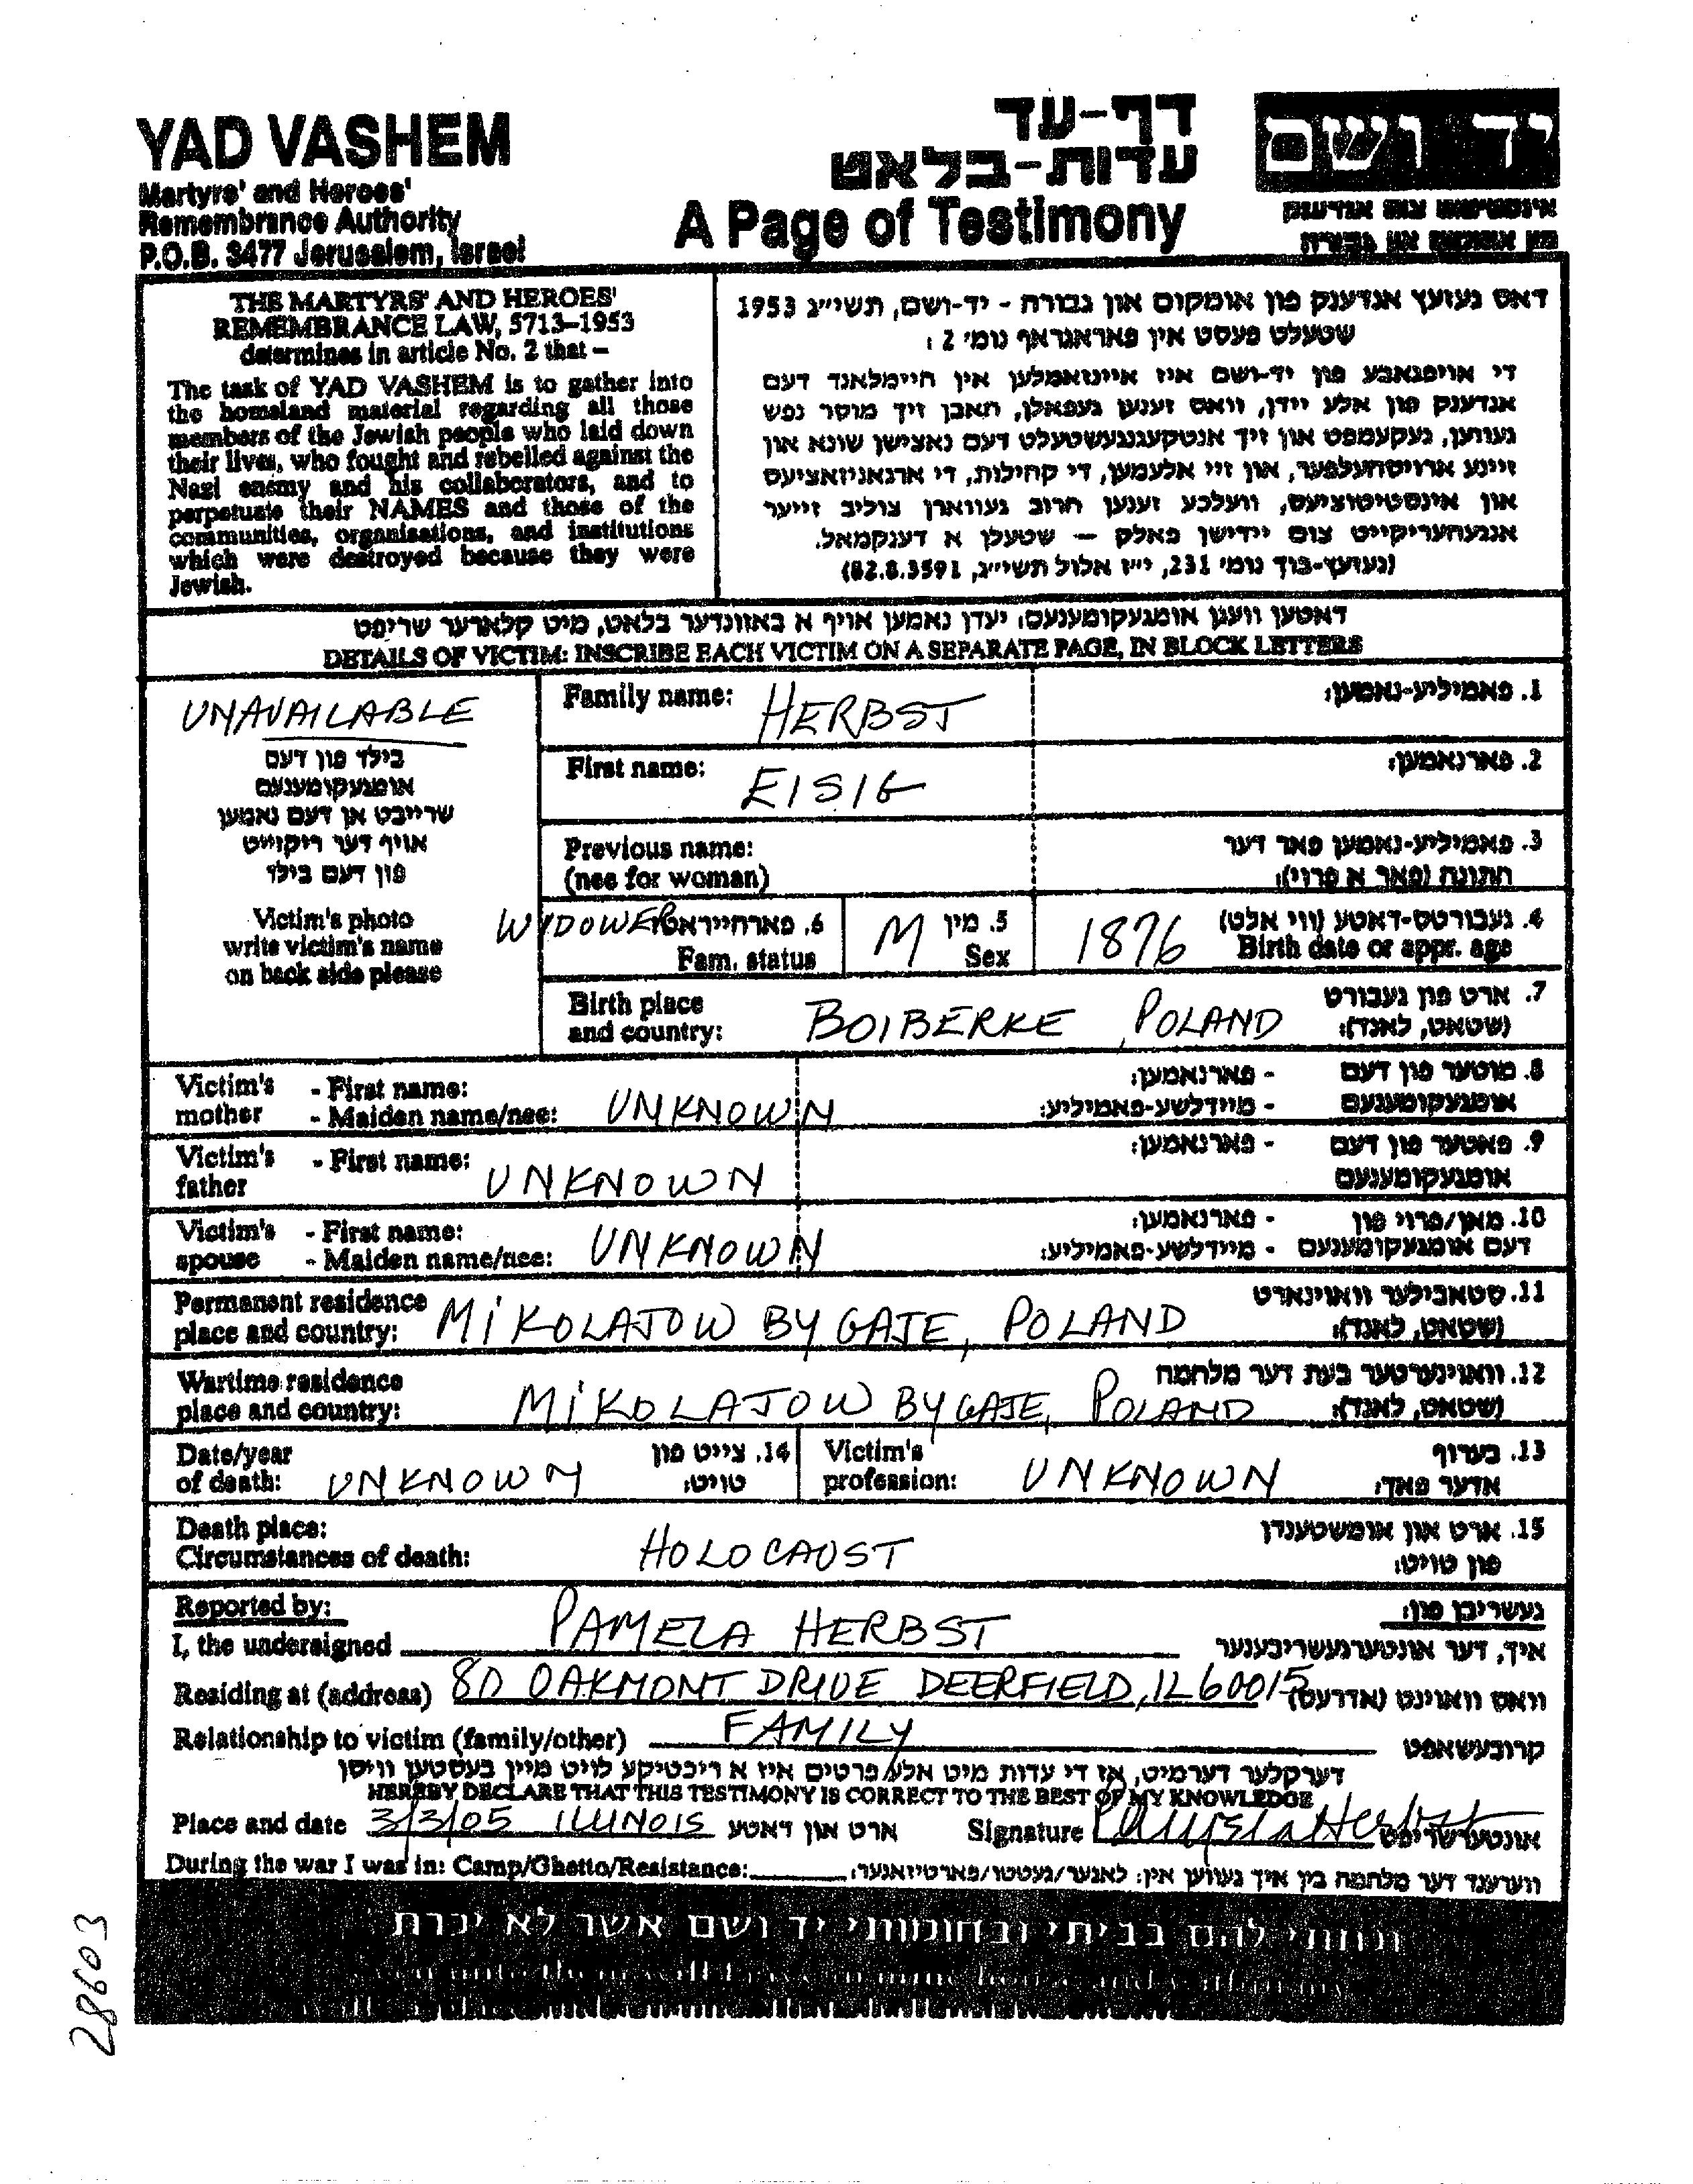 YAD VASHEM
Martyrs' and Heroes'
Remembrance Authority
P.O.B. 3477 Jerusalem, Israel
דף-עד
עדות-בלאט
A Page of Testimony
יד ושם
אינסטיטוט צום אנדענק
פון אומקום און גבורה
THE MARTYRS' AND HEROES'
REMEMBRANCE LAW, 5713–1953
determines in article No. 2 that –
The task of YAD VASHEM is to gather into
the homeland material regarding all those
members of the Jewish people who laid down
their lives, who fought and rebelled against the
Nazi enemy and his collaborators, and to
perpetuate their NAMES and those of the
communities, organisations, and institutions
which were destroyed because they were
Jewish.
דאס געזעץ אנדענק פון אומקום און גבורה - יד-ושם, תשי״ג 1953
שטעלט פעסט אין פאראגראף נומ׳ 2 :
די אויפגאבע פון יד-ושם איז איינזאמלען אין היימלאנד דעם
אנדענק פון אלע יידן, וואס זענען געפאלן, האבן זיך מוסר נפש
געווען, געקעמפט און זיך אנטקעגנגעשטעלט דעם נאצישן שונא און
זיינע ארויסהעלפער, און זיי אלעמען, די קהילות, די ארגאניזאציעס
און אינסטיטוציעס, וועלכע זענען חרוב געווארן צוליב זייער
אנגעהעריקייט צום יידישן פאלק – שטעלן א דענקמאל.
(געזעץ-בוך נומ׳ 231, י״ז אלול תשי״ג, 82.8.3591)
דאטען וועגן אומגעקומענעם: יעדן נאמען אויף א באזונדער בלאט, מיט קלארער שריפט
DETAILS OF VICTIM: INSCRIBE EACH VICTIM ON A SEPARATE PAGE, IN BLOCK LETTERS
UNAVAILABLE
בילד פון דעם
אומגעקומענעם
שרייבט אן דעם נאמען
אויף דער ריקווייט
פון דעם בילד
Victim's photo
write victim's name
on back side please
Family name: HERBST 1. פאמיליע-נאמען:
First name: EISIG 2. פארנאמען:
Previous name: 3. פאמיליע-נאמען פאר דער
(nee for woman) חתונה (פאר א פרוי):
WYDOWER 6. פארהייראט M 5. מין 1876 4. געבורטס-דאטע (ווי אלט)
Fam. status Sex Birth date or appr. age
Birth place 7. ארט פון געבורט
and country: BOIBERKE, POLAND (שטאט, לאנד):
Victim's - First name: - פארנאמען: 8. מוטער פון דעם
mother - Maiden name/nee: UNKNOWN - מיידלשע-פאמיליע: אומגעקומענעם
Victim's - First name: - פארנאמען: 9. פאטער פון דעם
father UNKNOWN אומגעקומענעם
Victim's - First name: - פארנאמען: 10. מאן/פרוי פון
spouse - Maiden name/nee: UNKNOWN - מיידלשע-פאמיליע: דעם אומגעקומענעם
Permanent residence 11. סטאבילער וואוינארט
place and country: MIKOLAJOW BY GAJE, POLAND (שטאט, לאנד):
Wartime residence 12. וואוינערטער בעת דער מלחמה
place and country: MIKOLAJOW BY GAJE, POLAND (שטאט, לאנד):
Date/year 14. צייט פון Victim's 13. בערוף
of death: UNKNOWN טויט: profession: UNKNOWN אדער פאך:
Death place: 15. ארט און אומשטענדן
Circumstances of death: HOLOCAUST פון טויט:
Reported by: געשריבן פון:
I, the undersigned PAMELA HERBST איך, דער אונטערגעשריבענער
Residing at (address) 80 OAKMONT DRIVE DEERFIELD, IL 60015 וואס וואוינט (אדרעס)
Relationship to victim (family/other) FAMILY קרובעשאפט
דערקלער דערמיט, אז די עדות מיט אלע פרטים איז א ריכטיקע לויט מיין בעסטען וויסן
HEREBY DECLARE THAT THIS TESTIMONY IS CORRECT TO THE BEST OF MY KNOWLEDGE
Place and date 3/3/05 ILLINOIS ארט און דאטע Signature Pamela Herbst אונטערשריפט
During the war I was in: Camp/Ghetto/Resistance: ווערענד דער מלחמה בין איך געווען אין: לאגער/געטטו/פארטיזאנער:
ונתתי להם בביתי ובחומותי יד ושם אשר לא יכרת
28603